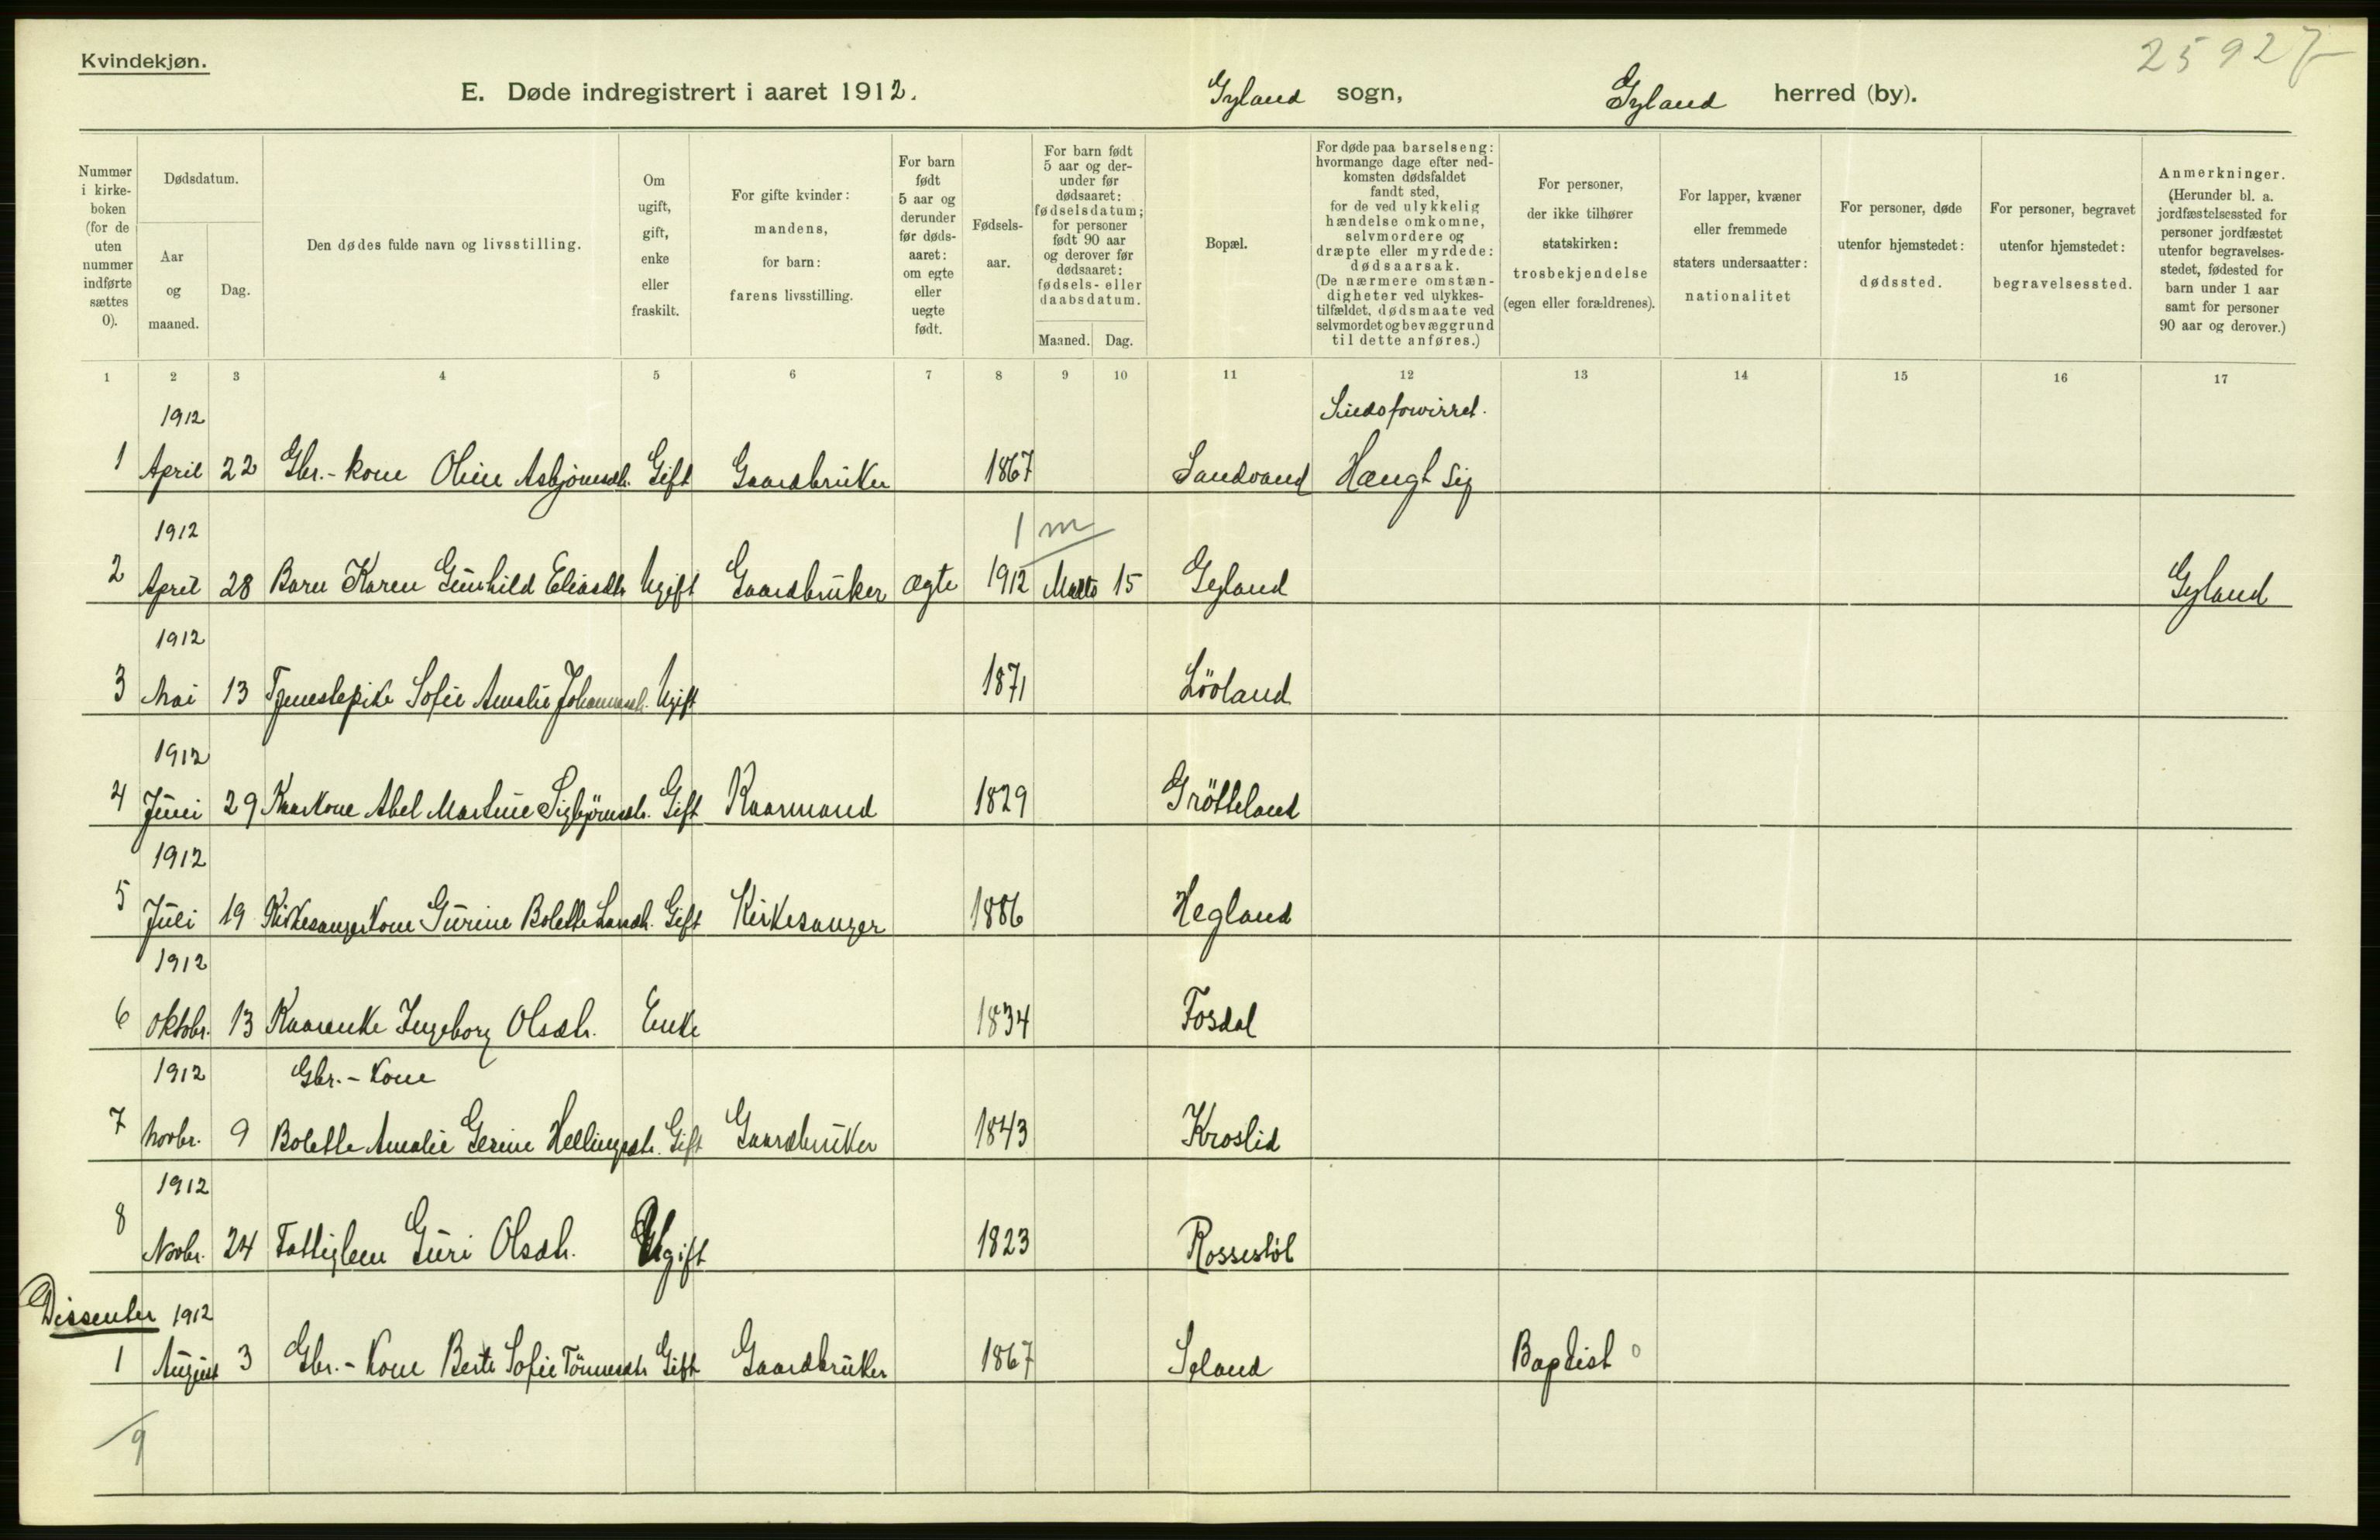 25927
Kvindekjøn.
E. Døde indregistrert i aaret 1912. Gyland sogn, Gyland herred (by).
Nummer i kirke-boken (for de uten nummer indførte sættes 0).
Dødsdatum.
Aar og maaned.
Dag.
Den dødes fulde navn og livsstilling.
Om ugift, gift, enke eller fraskilt.
For gifte kvinder: mandens, for barn: farens livsstilling.
For barn født 5 aar og derunder før døds-aaret: om egte eller uegte født.
Fødsels-aar.
For barn født 5 aar og der-under før dødsaaret: fødselsdatum; for personer født 90 aar og derover før dødsaaret: fødsels- eller daabsdatum.
Maaned. Dag.
Bopæl.
For døde paa barselseng: hvormange dage efter ned-komsten dødsfaldet fandt sted, for de ved ulykkelig hændelse omkomne, selvmordere og dræpte eller myrdede: dødsaarsak. (De nærmere omstæn-digheter ved ulykkes-tilfældet, dødsmaate ved selvmordet og bevæggrund til dette anføres.)
For personer, der ikke tilhører statskirken: trosbekjendelse (egen eller forældrenes).
For lapper, kvæner eller fremmede staters undersaatter: nationalitet
For personer, døde utenfor hjemstedet: dødssted.
For personer, begravet utenfor hjemstedet: begravelsessted.
Anmerkninger. (Herunder bl. a. jordfæstelsessted for personer jordfæstet utenfor begravelses-stedet, fødested for barn under 1 aar samt for personer 90 aar og derover.)
1 2 3 4 5 6 7 8 9 10 11 12 13 14 15 16 17
1912 Sindsforvirret.
1 April 22 Gbr.-kone Oline Asbjørnsdtr. Gift Gaardbruker 1867 Sandvand Hængt sig
1912 1 m
2 April 28 Barn Karen Gunhild Eliasdtr Ugift Gaardbruker ægte 1912 Marts 15 Gyland Gyland
1912
3 Mai 13 Tjenestepike Sofie Amalie Johannesdt. Ugift 1871 Löoland
1912
4 Juni 29 Kaarkone Abel Martine Sigbjörnsdtr. Gift Kaarmand 1829 Grötteland
1912
5 Juli 19 Kirkesangerkone Gurine Bolette Larsdt. Gift Kirkesanger 1886 Hegland
1912
6 Oktobr. 13 Kaarenke Ingeborg Olsdtr. Enke 1834 Fosdal
1912 Gbr.-Kone
7 Novbr. 9 Bolette Amalie Gesine Hellingsdtr. Gift Gaardbruker 1843 Kroslid
1912
8 Novbr. 24 Fattiglem Guri Olsdtr. Ugift 1823 Rossestöl
Dissenter 1912
1 August 3 Gbr.-Kone Berte Sofie Tönnesdtr Gift Gaardbruker 1867 Seland Baptist 0
9